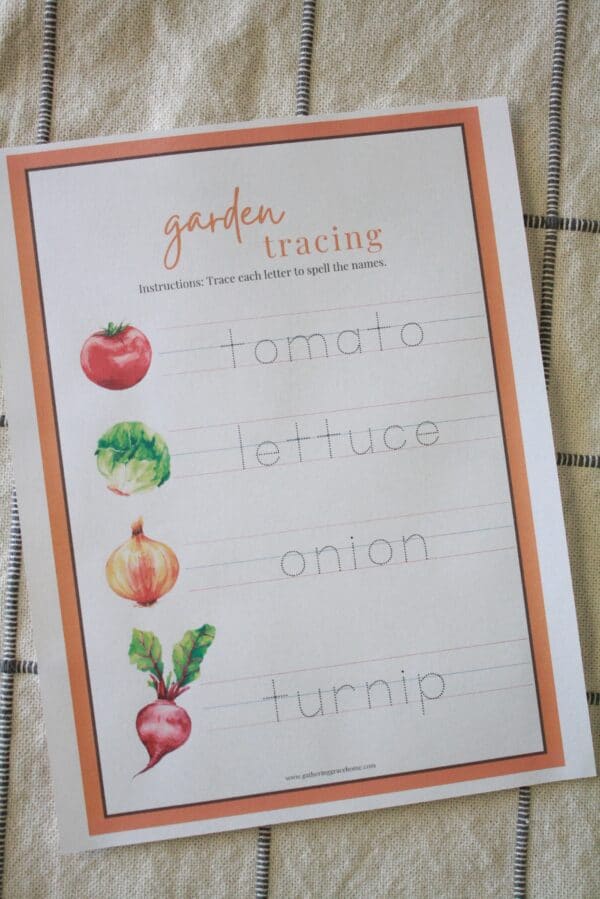 garden
tracing
Instructions: Trace each letter to spell the names.
tomato
lettuce
onion
turnip
www.gatheringgracehome.com